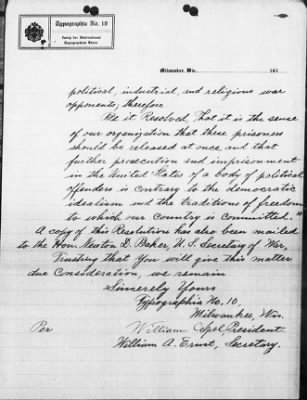 Typographia No. 10
Milwaukee, Wis. 191
political, industrial, and religious war
opponents; therefore
Be it Resolved, That it is the sense
of our organization that these prisoners
should be released at once and that
further prosecution and imprisonment
in the United States of a body of political
offenders is contrary to the democratic
idealism and the traditions of freedom
to which our Country is committed."
A copy of this Resolution has also been mailed
to the Hon. Newton D. Baker, U. S. Secretary of War,
Trusting that You will give this matter
due Consideration, we remain
Sincerely Yours
Typographia No. 10,
Milwaukee, Wis.
Per William President.
William A. Ernst, Secretary.